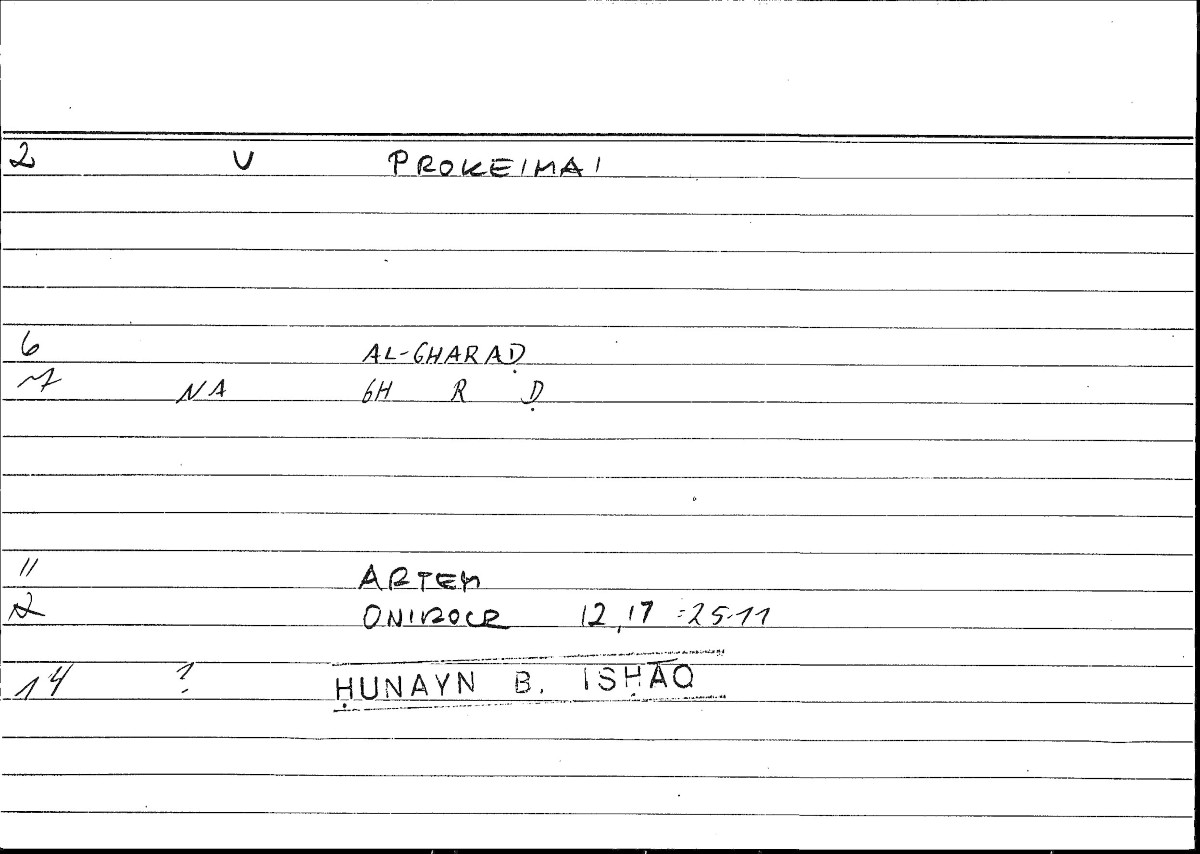 2 V PROKEIMAI
6 AL-GHARAḌ
7 NA GH R Ḍ
11 ARTEM
2 ONIROCR 12,17 =25.11
14 ? ḤUNAYN B. ISḤĀQ